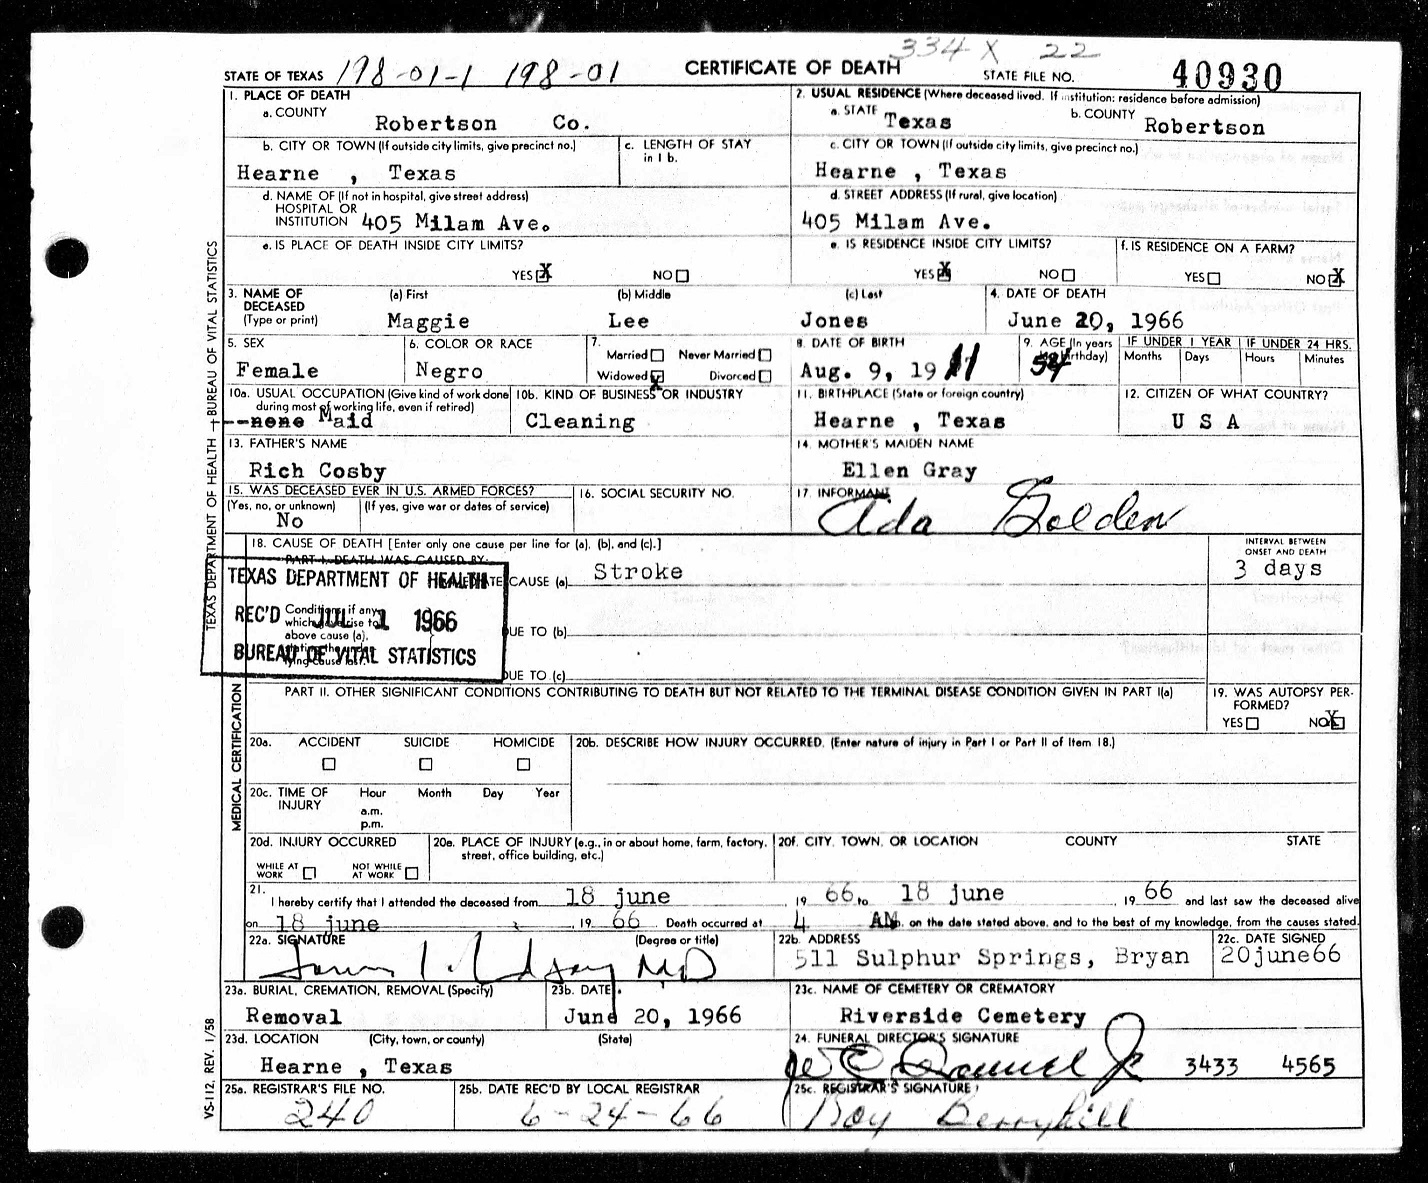 334 X 22
STATE OF TEXAS 198-01-1 198-01 CERTIFICATE OF DEATH STATE FILE NO. 40930
1. PLACE OF DEATH
a. COUNTY
Robertson Co.
2. USUAL RESIDENCE (Where deceased lived. If institution: residence before admission)
a. STATE Texas b. COUNTY Robertson
b. CITY OR TOWN (If outside city limits, give precinct no.)
Hearne , Texas
c. LENGTH OF STAY in 1 b.
c. CITY OR TOWN (If outside city limits, give precinct no.)
Hearne , Texas
d. NAME OF (If not in hospital, give street address)
HOSPITAL OR
INSTITUTION 405 Milam Ave.
d. STREET ADDRESS (If rural, give location)
405 Milam Ave.
e. IS PLACE OF DEATH INSIDE CITY LIMITS?
YES X NO
e. IS RESIDENCE INSIDE CITY LIMITS?
YES X NO
f. IS RESIDENCE ON A FARM?
YES NO X
3. NAME OF DECEASED (Type or print)
(a) First (b) Middle (c) Last
Maggie Lee Jones
4. DATE OF DEATH
June 20, 1966
5. SEX
Female
6. COLOR OR RACE
Negro
7.
Married Never Married
Widowed X Divorced
8. DATE OF BIRTH
Aug. 9, 1911
9. AGE (In years birthday)
54
IF UNDER 1 YEAR IF UNDER 24 HRS.
Months Days Hours Minutes
10a. USUAL OCCUPATION (Give kind of work done during most of working life, even if retired)
--none Maid
10b. KIND OF BUSINESS OR INDUSTRY
Cleaning
11. BIRTHPLACE (State or foreign country)
Hearne , Texas
12. CITIZEN OF WHAT COUNTRY?
U S A
13. FATHER'S NAME
Rich Cosby
14. MOTHER'S MAIDEN NAME
Ellen Gray
15. WAS DECEASED EVER IN U.S. ARMED FORCES?
(Yes, no, or unknown) (If yes, give war or dates of service)
No
16. SOCIAL SECURITY NO.
17. INFORMANT
Ada Golden
18. CAUSE OF DEATH [Enter only one cause per line for (a), (b), and (c).]
PART I. DEATH WAS CAUSED BY:
CAUSE (a) Stroke
INTERVAL BETWEEN ONSET AND DEATH
3 days
TEXAS DEPARTMENT OF HEALTH
REC'D JUL 1 1966
BUREAU OF VITAL STATISTICS
Conditions, if any,
above cause (a),
DUE TO (b)
DUE TO (c)
PART II. OTHER SIGNIFICANT CONDITIONS CONTRIBUTING TO DEATH BUT NOT RELATED TO THE TERMINAL DISEASE CONDITION GIVEN IN PART I(a)
19. WAS AUTOPSY PERFORMED?
YES NO X
20a. ACCIDENT SUICIDE HOMICIDE
20b. DESCRIBE HOW INJURY OCCURRED. (Enter nature of injury in Part I or Part II of Item 18.)
20c. TIME OF INJURY
Hour Month Day Year
a.m.
p.m.
20d. INJURY OCCURRED
WHILE AT WORK NOT WHILE AT WORK
20e. PLACE OF INJURY (e.g., in or about home, farm, factory, street, office building, etc.)
20f. CITY, TOWN, OR LOCATION COUNTY STATE
21. I hereby certify that I attended the deceased from 18 june 19 66, to 18 june 19 66 and last saw the deceased alive
on 18 june , 19 66 Death occurred at 4 AM. on the date stated above, and to the best of my knowledge, from the causes stated.
22a. SIGNATURE (Degree or title)
MD
22b. ADDRESS
511 Sulphur Springs, Bryan
22c. DATE SIGNED
20june66
23a. BURIAL, CREMATION, REMOVAL (Specify)
Removal
23b. DATE
June 20, 1966
23c. NAME OF CEMETERY OR CREMATORY
Riverside Cemetery
23d. LOCATION (City, town, or county) (State)
Hearne , Texas
24. FUNERAL DIRECTOR'S SIGNATURE
3433 4565
25a. REGISTRAR'S FILE NO.
240
25b. DATE REC'D BY LOCAL REGISTRAR
6-24-66
25c. REGISTRAR'S SIGNATURE
Roy Berryhill
TEXAS DEPARTMENT OF HEALTH — BUREAU OF VITAL STATISTICS
MEDICAL CERTIFICATION
VS-112, REV. 1/58